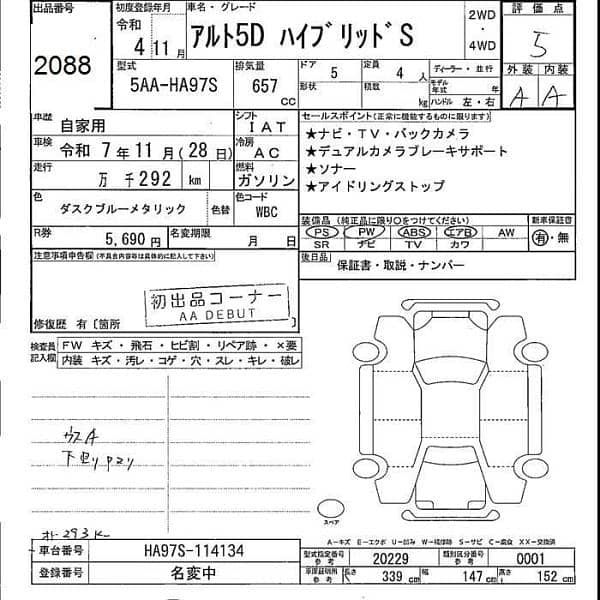 出品番号
2088
初度登録年月
令和
4 11月
車名・グレード
アルト5D ハイブリッドS
2WD
・
4WD
評価点
5
外装 内装
A A
型式
5AA-HA97S
排気量
657
CC
ドア 5
形状
定員 4 人
積載 kg
ディーラー・並行
モデル年式 年
ハンドル 左・右
車歴
自家用
シフト
IAT
車検
令和 7年 11月 (28日)
冷房
AC
走行
万 千292 km
燃料
ガソリン
色
ダスクブルーメタリック
色替
色コード
WBC
R券
5,690 円
名変期限
月 日
セールスポイント(正常に機能するものに限ります)
★ナビ・TV・バックカメラ
★デュアルカメラブレーキサポート
★ソナー
★アイドリングストップ
装備品 (純正品に限り○をつけてください)
PS PW ABS エアB AW
SR ナビ TV カワ
新車保証書
有・無
後日品
保証書・取説・ナンバー
注意事項申告欄(不具合内容等は具体的に記入して下さい)
初出品コーナー
AA DEBUT
修復歴 有〔箇所
検査員
記入欄
FW キズ・飛石・ヒビ割・リペア跡・×要
内装 キズ・汚レ・コゲ・穴・スレ・キレ・破レ
ウスA
スペア
A－キズ E－エクボ U－凹み W－補修跡 S－サビ C－腐食 XX－交換済
車台番号
HA97S-114134
登録番号
名変中
型式指定番号
参考
20229
類別区分番号
参考
0001
車庫証明用
参考
長さ
339 cm
幅
147 cm
高さ
152 cm